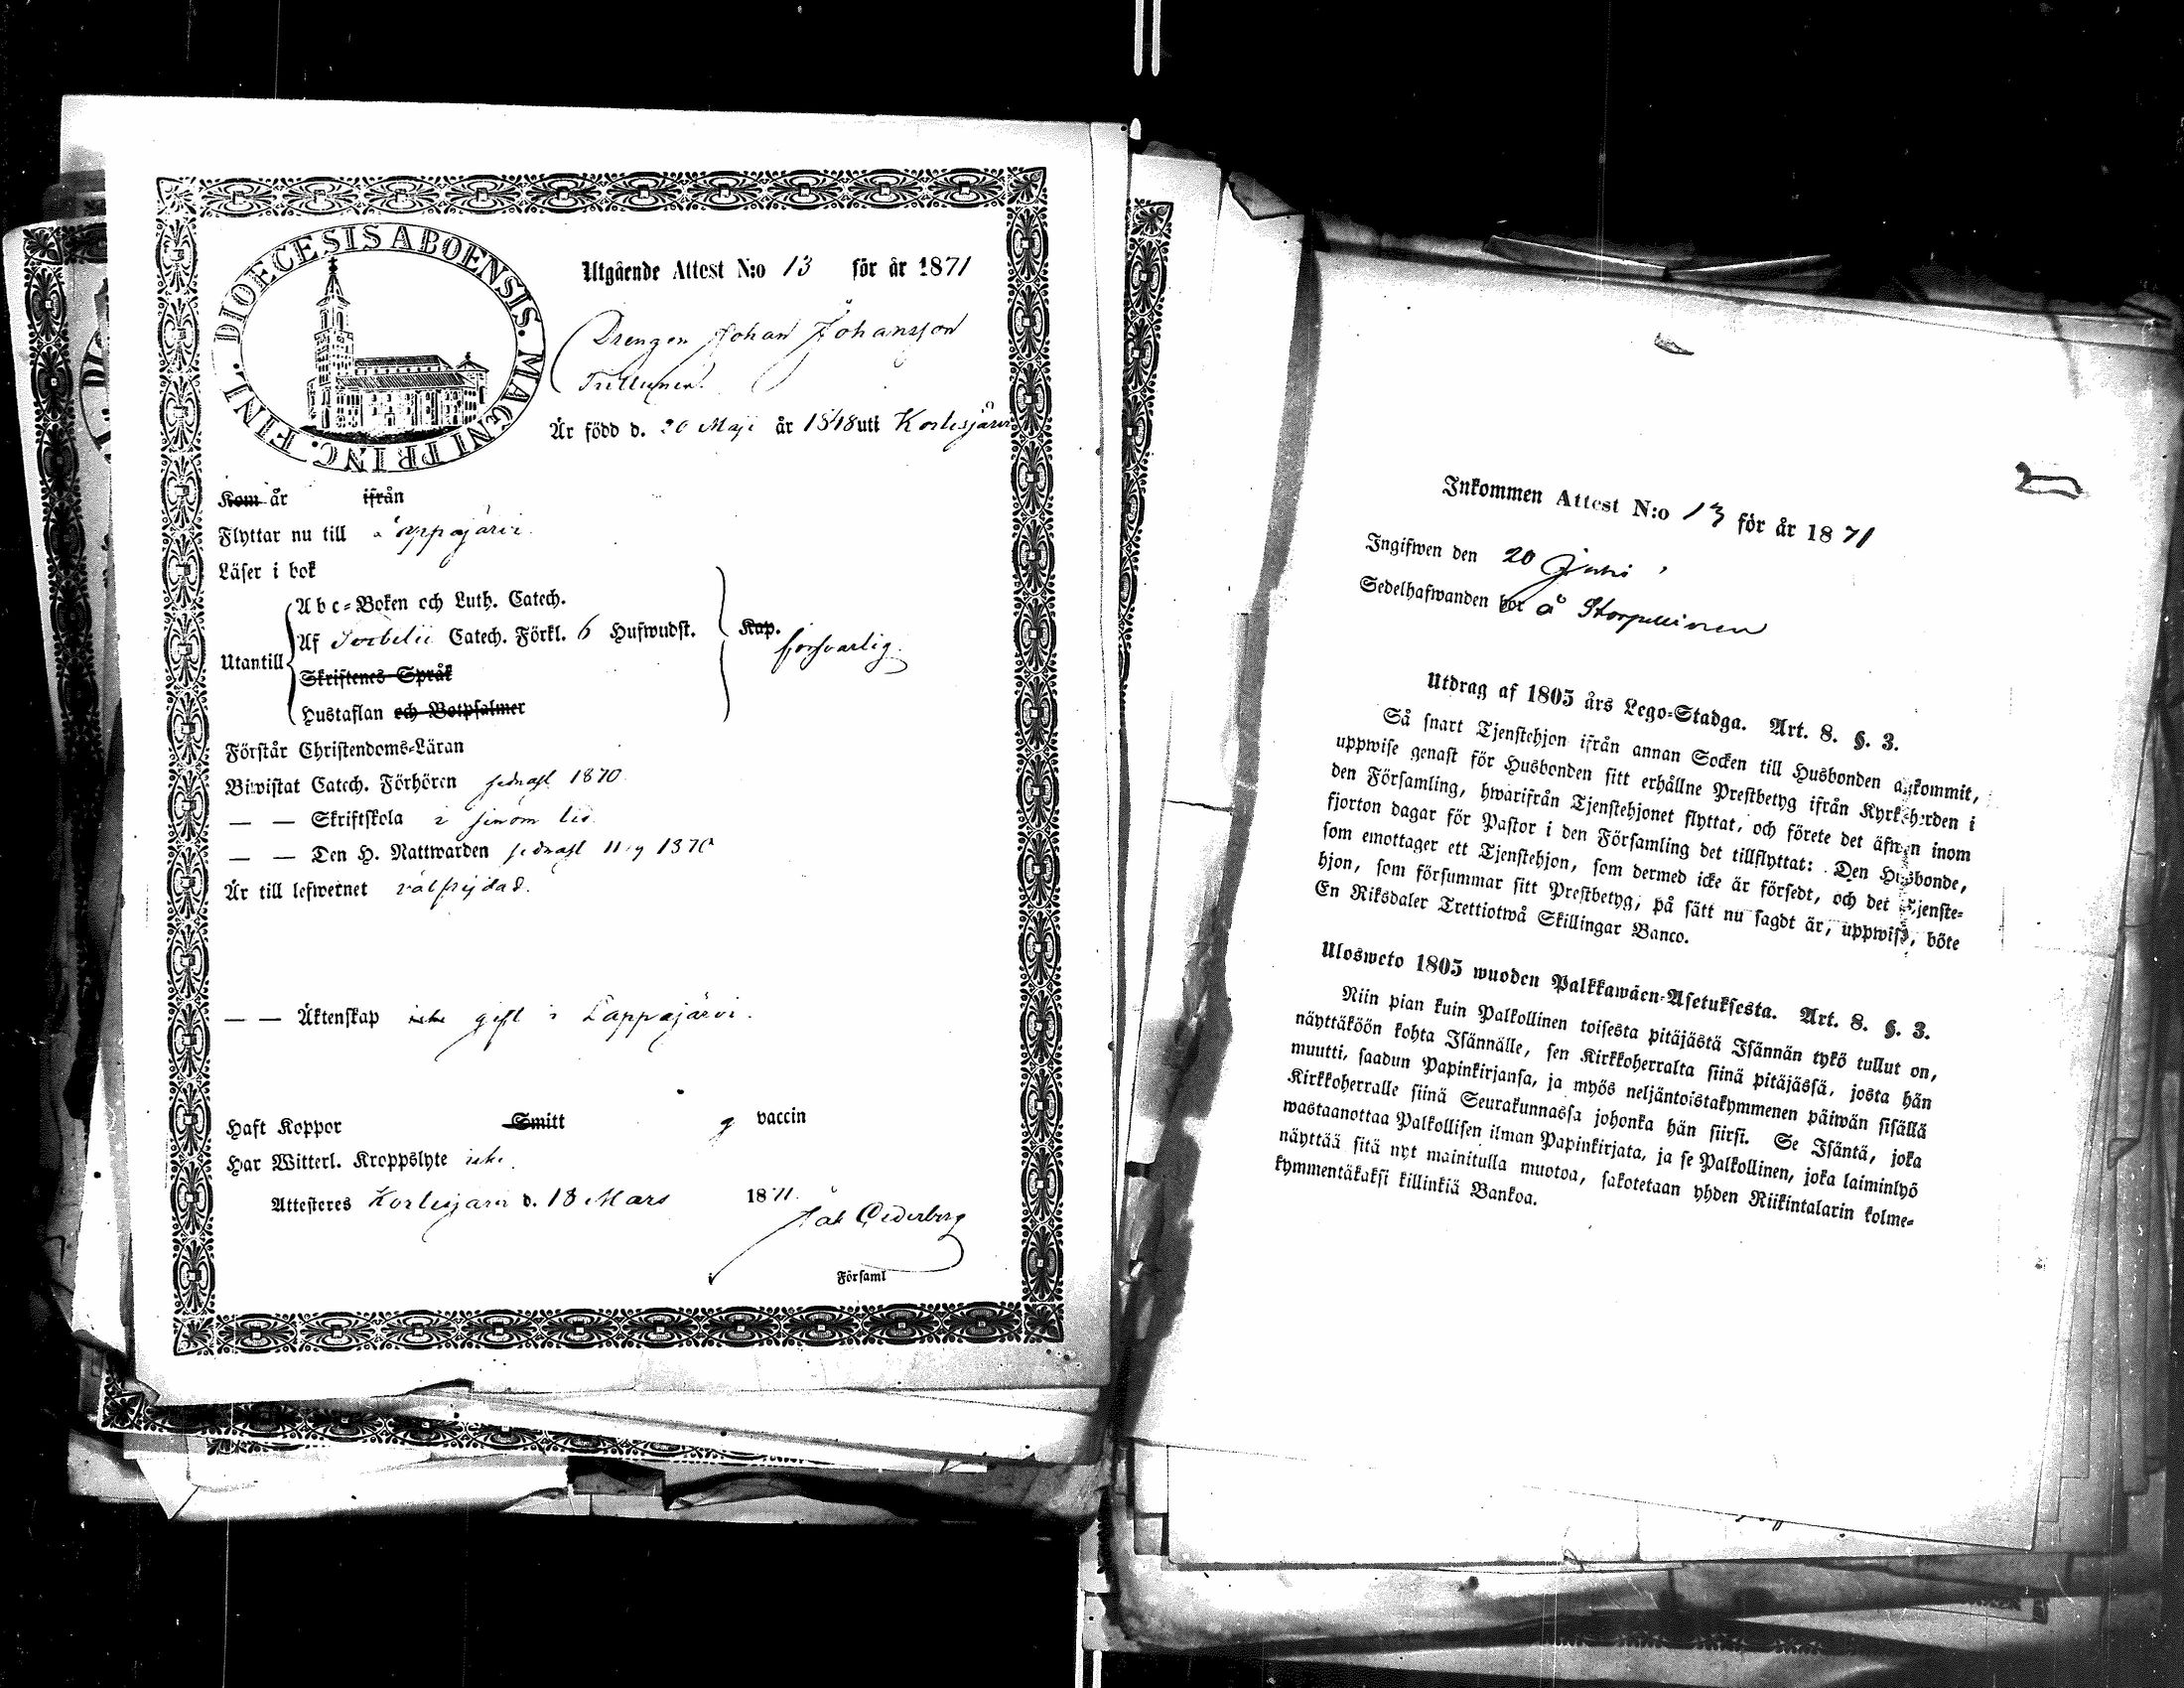 DIOECESIS ABOENSIS. MAGNI PRINC. FINL.
Utgående Attest N:o 13 för år 1871
Drengen Johan Johansson
Är född d. 20 Maji år 1848 uti Kortesjärvi
Kom år ifrån
Flyttar nu till Lappajärvi.
Läser i bok
Utantill
Abc-Boken och Luth. Catech.
Af Svebelii Catech. Förkl. 6 Hufwudst.
Skriftenes Språk
Hustaflan och Botpsalmer
Kap.
försvarlig.
Förstår Christendoms-Läran
Biwistat Catech. Förhören sednast 1870
— — Skriftskola i sinom tid.
— — Den H. Nattwarden sednast 1870
Är till lefwernet välfrejdad.
— — Äktenskap icke gift i Lappajärvi.
Haft Koppor Smitt g vaccin
Har Witterl. Kroppslyte icke
Attesteres Kortesjärvi d. 18 Mars 1871.
Jak Cederberg
Församl
Inkommen Attest N:o 13 för år 1871
Ingifwen den 20 Juni
Sedelhafwanden bor å
Utdrag af 1805 års Lego-Stadga. Art. 8. §. 3.
Så snart Tjenstehjon ifrån annan Socken till Husbonden ankommit,
uppwise genast för Husbonden sitt erhållne Prestbetyg ifrån Kyrkoherden i
den Församling, hwarifrån Tjenstehjonet flyttat, och förete det äfwen inom
fjorton dagar för Pastor i den Församling det tillflyttat: Den Husbonde,
som emottager ett Tjenstehjon, som dermed icke är försedt, och det Tjenste-
hjon, som försummar sitt Prestbetyg, på sätt nu sagdt är, uppwisa, böte
En Riksdaler Trettiotwå Skillingar Banco.
Ulosweto 1805 wuoden Palkkawäen-Asetuksesta. Art. 8. §. 3.
Niin pian kuin Palkollinen toisesta pitäjästä Isännän tykö tullut on,
näyttäköön kohta Isännälle, sen Kirkkoherralta siinä pitäjässä, josta hän
muutti, saadun Papinkirjansa, ja myös neljäntoistakymmenen päiwän sisällä
Kirkkoherralle siinä Seurakunnassa johonka hän siirsi. Se Isäntä, joka
wastaanottaa Palkollisen ilman Papinkirjata, ja se Palkollinen, joka laiminlyö
näyttää sitä nyt mainitulla muotoa, sakotetaan yhden Riikintalarin kolme-
kymmentäkaksi killinkiä Bankoa.